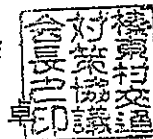 榛東村交通
対策協議
会長之印
卓